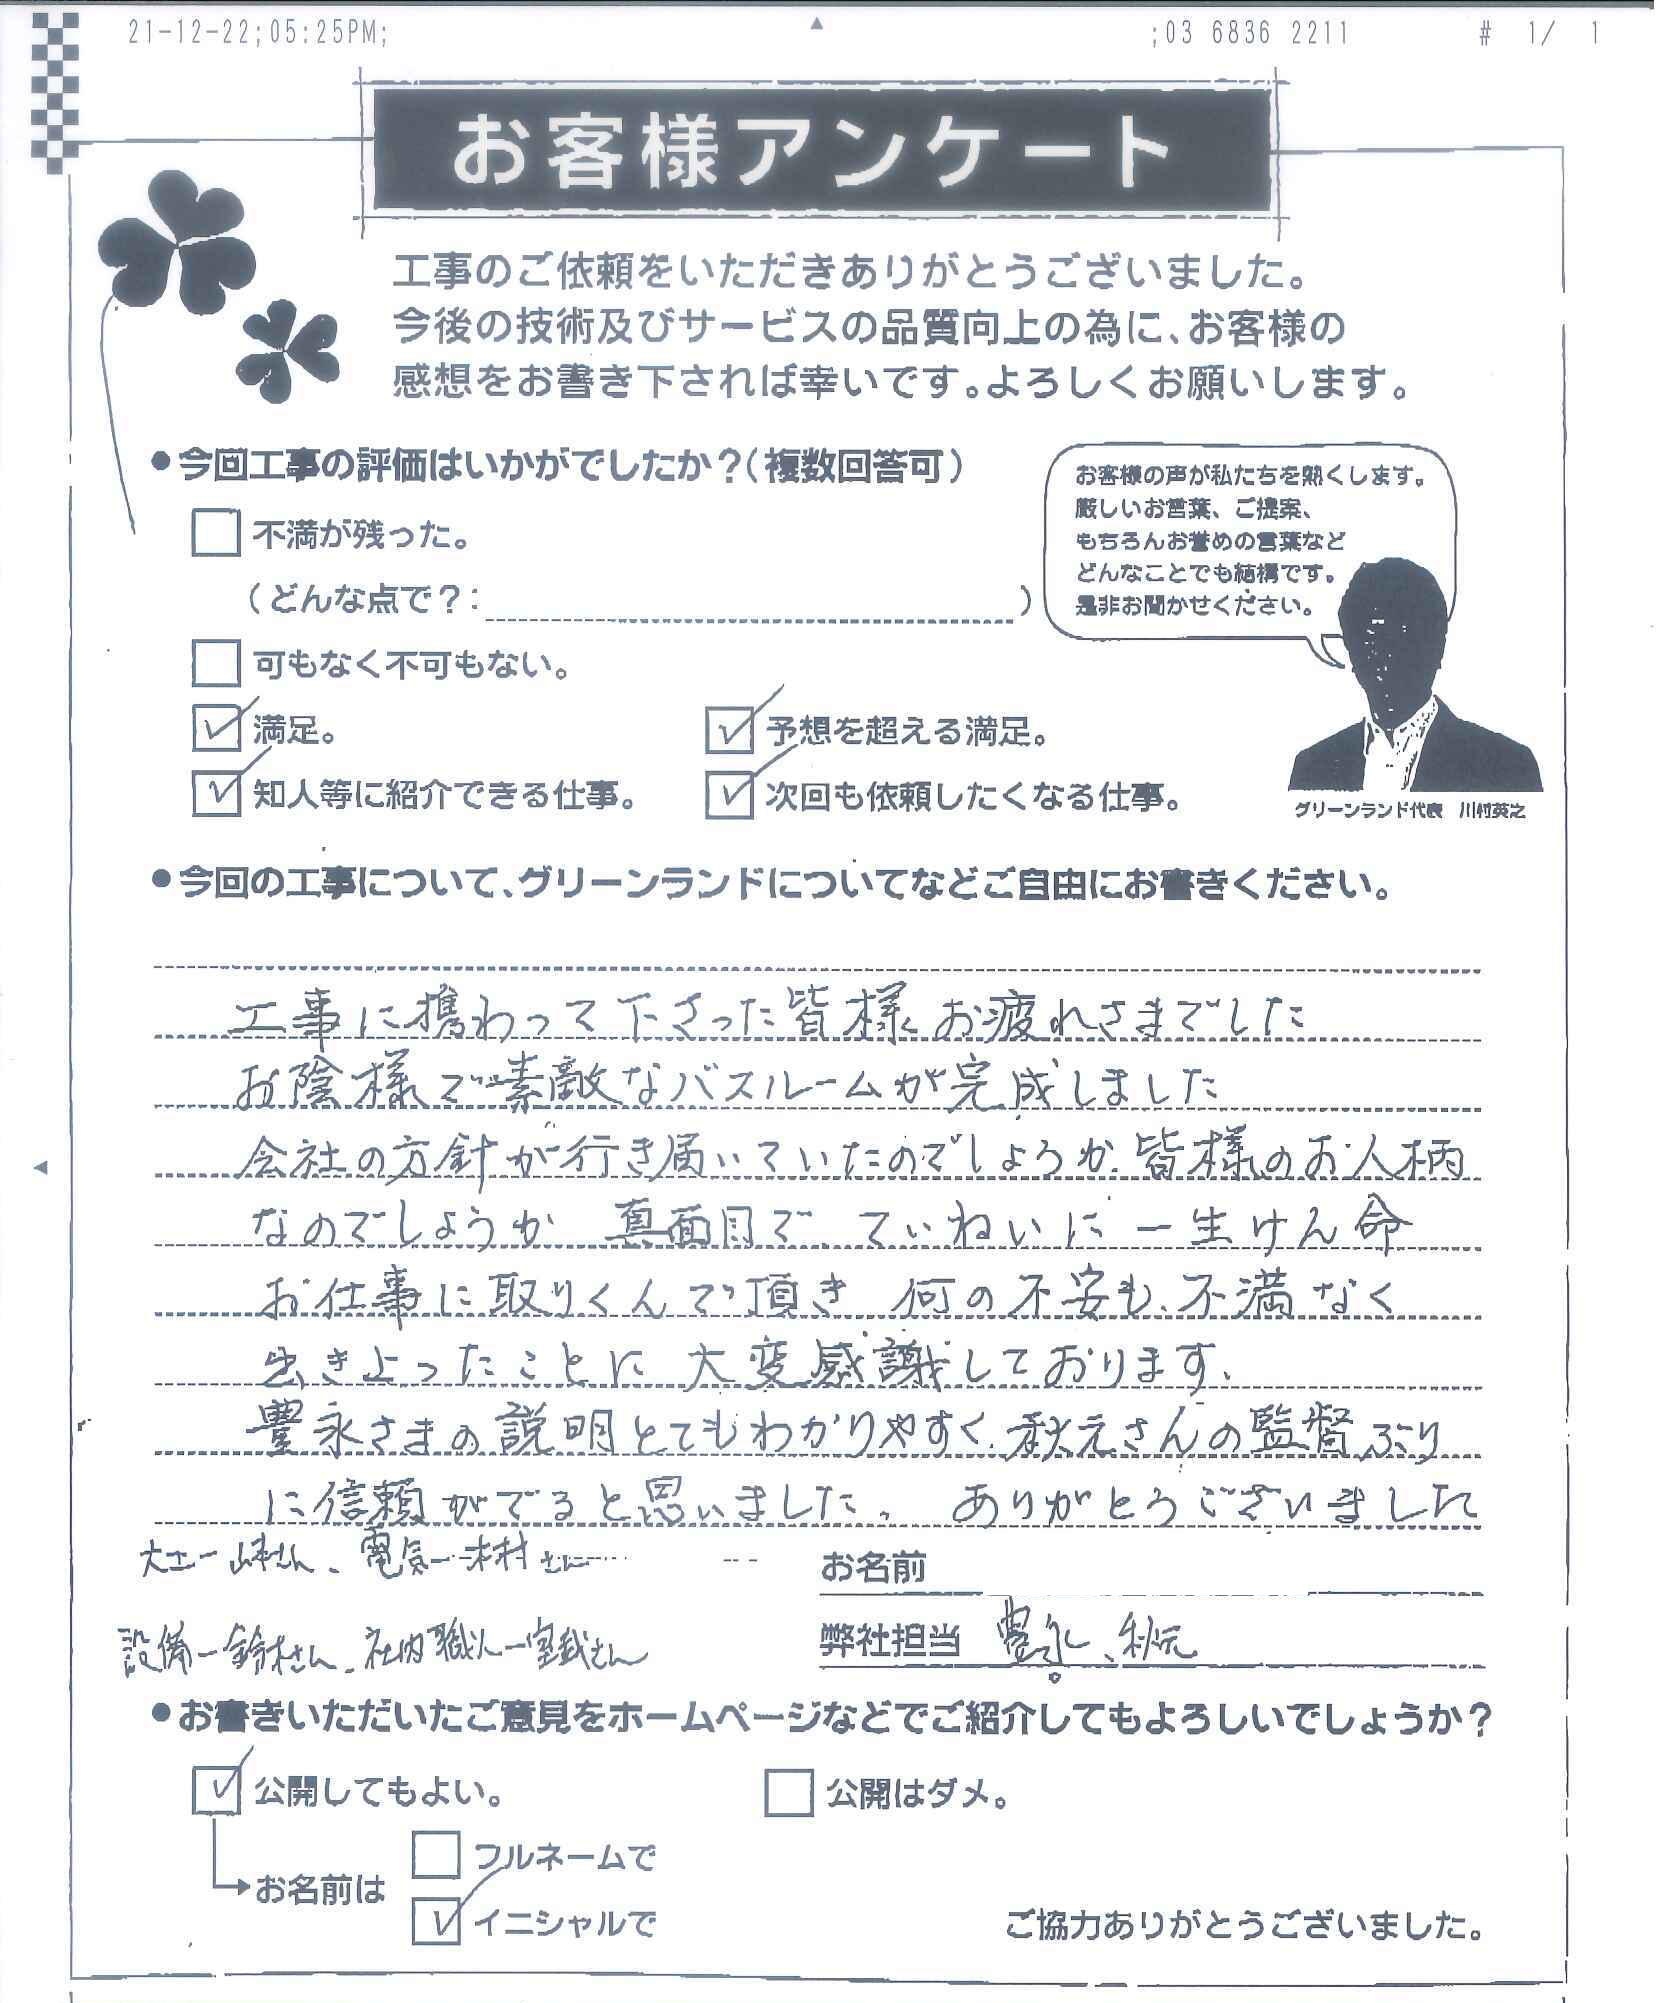 21-12-22;05:25PM; ;03 6836 2211 # 1/ 1
お客様アンケート
工事のご依頼をいただきありがとうございました。
今後の技術及びサービスの品質向上の為に、お客様の
感想をお書き下されば幸いです。よろしくお願いします。
●今回工事の評価はいかがでしたか?(複数回答可)
不満が残った。
(どんな点で?: )
可もなく不可もない。
満足。
予想を超える満足。
知人等に紹介できる仕事。
次回も依頼したくなる仕事。
お客様の声が私たちを熱くします。
厳しいお言葉、ご提案、
もちろんお誉めの言葉など
どんなことでも結構です。
是非お聞かせください。
グリーンランド代表 川村英之
●今回の工事について、グリーンランドについてなどご自由にお書きください。
工事に携わって下さった皆様 お疲れさまでした
お陰様で素敵なバスルームが完成しました
会社の方針が行き届いていたのでしょうか、皆様のお人柄
なのでしょうか 真面目で ていねいに 一生けん命
お仕事に取りくんで頂き 何の不安も、不満なく
出き上ったことに 大変感謝しております、
豊永さまの説明とてもわかりやすく、秋元さんの監督ぶり
に信頼ができると思いました。 ありがとうございました
大工ー山本さん、電気ー木村さん
設備ー鈴木さん、社内職人ー室さん
お名前
弊社担当 豊永、秋元
●お書きいただいたご意見をホームページなどでご紹介してもよろしいでしょうか?
公開してもよい。
公開はダメ。
お名前は
フルネームで
イニシャルで
ご協力ありがとうございました。